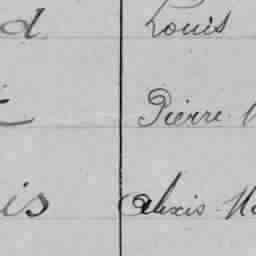 d Louis
Pierre
is Alexis